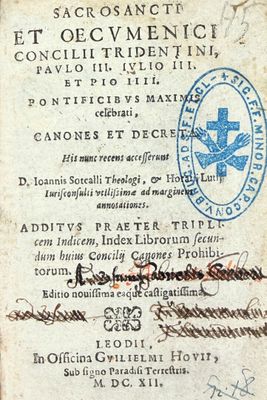 SACROSANCTI
ET OECVMENICI
CONCILII TRIDENTINI,
PAVLO III. IVLIO III.
ET PIO IIII.
PONTIFICIBVS MAXIMIS
celebrati,
CANONES ET DECRETA.
His nunc recens accesserunt
D. Ioannis Sotealli Theologi, & Horatij Lutij
Iurisconsulti vtilissimæ ad marginem
annotationes.
ADDITVS PRAETER TRIPLI-
cem Indicem, Index Librorum secun-
dum huius Concilij Canones Prohibi-
torum.
Editio nouissima eaque castigatissima.
LEODII,
In Officina GVILIELMI HOVII,
Sub signo Paradisi Terrestris.
M. DC. XII.
SIG. F. F. MINOR. CAP. CONV.